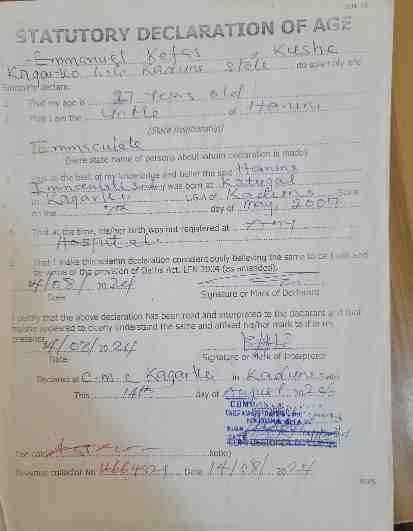 STATUTORY DECLARATION OF AGE
Emmanuel Kefas of Kushe
Kagarko L.G.A Kaduna State do solemnly and
Sincerely declare.
1. That my age is 27 years old
2. That I am the Uncle of Hanini
(State Relationship)
Immaculate
(Here state name of persons about whom declaration is made)
That to the best of my knowledge and belief the said Hanini
Immaculate was born at Katugal
in Kagarko L.G.A of Kaduna State
on the day of May 2007
That at the time, his/her birth was not registered at Any
Hospital
That I make this solemn declaration conscientiously believing the same to be true and
by virtue of the provision of Oaths Act. LFN 2004 (as amended).
14/08/2024
Date Signature or Mark of Declarant
I certify that the above declaration has been read and interpreted to the declarant and that
he/she appeared to clearly understand the same and affixed his/her mark to it in my
presence
14/08/2024
Date Signature or Mark of Interpreter
Declared at C.M.C Kagarko in Kaduna State
This 14th day of August 2024
Fee collected kobo)
Revenue collector No Date 14/08/2024